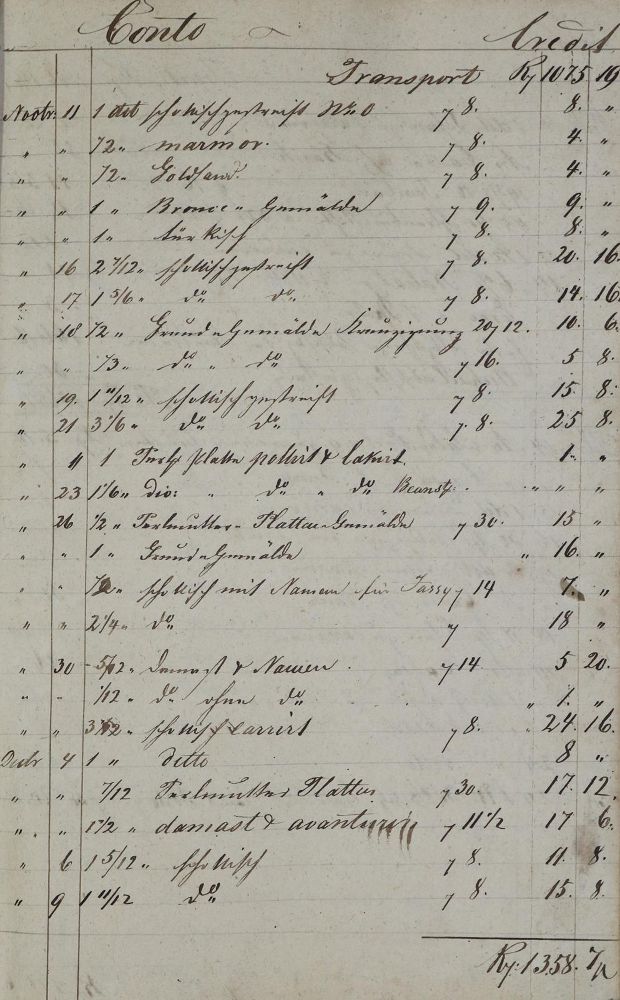 Conto Credit
Transport Rf 1075 19
Novbr. 11 1 dtt schottischgestreift No. 0 7 8. 8. "
" " 1/2 " marmor. 7 8. 4. "
" " 1/2 " Goldsand. 7 8. 4. "
" " 1 " Bronce " Gemälde 7 9. 9. "
" " 1 " türkisch 7 8. 8. "
" 16 2 7/12 " schottischgestreift 7 8. 20. 16.
" 17 1 5/6 " do do. 7 8. 14. 16.
" 18 1/2 " Gemälde Kreuzigung 20 7 12. 10. 6.
" " 1/3 " do " do 7 16. 5 8.
" 19. 1 11/12 " schottischgestreift 7 8. 15. 8.
" 21 3 1/6 " do do 7. 8. 25 8.
" 11 1 Platte polirt & lakirt. 1. "
" 23 1 1/6 " dio: " do " do . " " "
" 26 1/2 " Perlmutter-Plattau Gemälde 7 30. 15 "
" " 1 " Gemälde " 16. "
" " 1/2 " schottisch mit Namen für Jassy 7 14 7. "
" " 2 1/4 " do 7 18 "
" 30 - 5/12 " Damast & Namen . 7 14 5 20.
" " 1/12 " do ohne do . " 1. "
" " 3 1/12 " schottisch carrirt 7 8. " 24. 16.
Decbr 4 1 " ditto 8 "
" " 7/12 Perlmutter Plattau 7 30. 17. 12
" " 1 1/2 " damast & avanturin 7 11 1/2 17 6.
" 6 1 5/12 " schottisch 7 8. 11. 8.
" 9 1 11/12 do 7 8. 15. 8.
Rf: 1358. 7